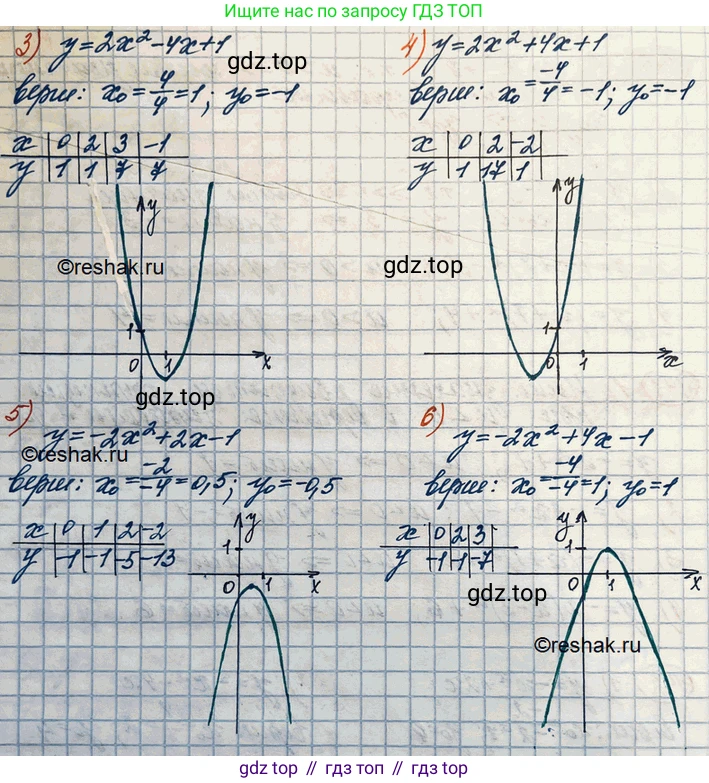 Ищите нас по запросу ГДЗ ТОП
3) y=2x²-4x+1
gdz.top
верш: x₀=4/4=1; y₀=-1
x | 0 | 2 | 3 | -1
y | 1 | 1 | 7 | 7
y
©reshak.ru
1
0 1 x
gdz.top
4) y=2x²+4x+1
верш: x₀=-4/4=-1; y₀=-1
x | 0 | 2 | -2
y | 1 | 17 | 1
y
gdz.top
1
0 1 x
5) y=-2x²+2x-1
©reshak.ru
верш: x₀=-2/-4=0,5; y₀=-0,5
x | 0 | 1 | 2 | -2
y | -1 | -1 | -5 | -13
y
1
0 1 x
6) y=-2x²+4x-1
верш: x₀=-4/-4=1; y₀=1
x | 0 | 2 | 3
y | -1 | -1 | -7
y
1
0 1 x
gdz.top
©reshak.ru
gdz top // гдз топ // гдз top